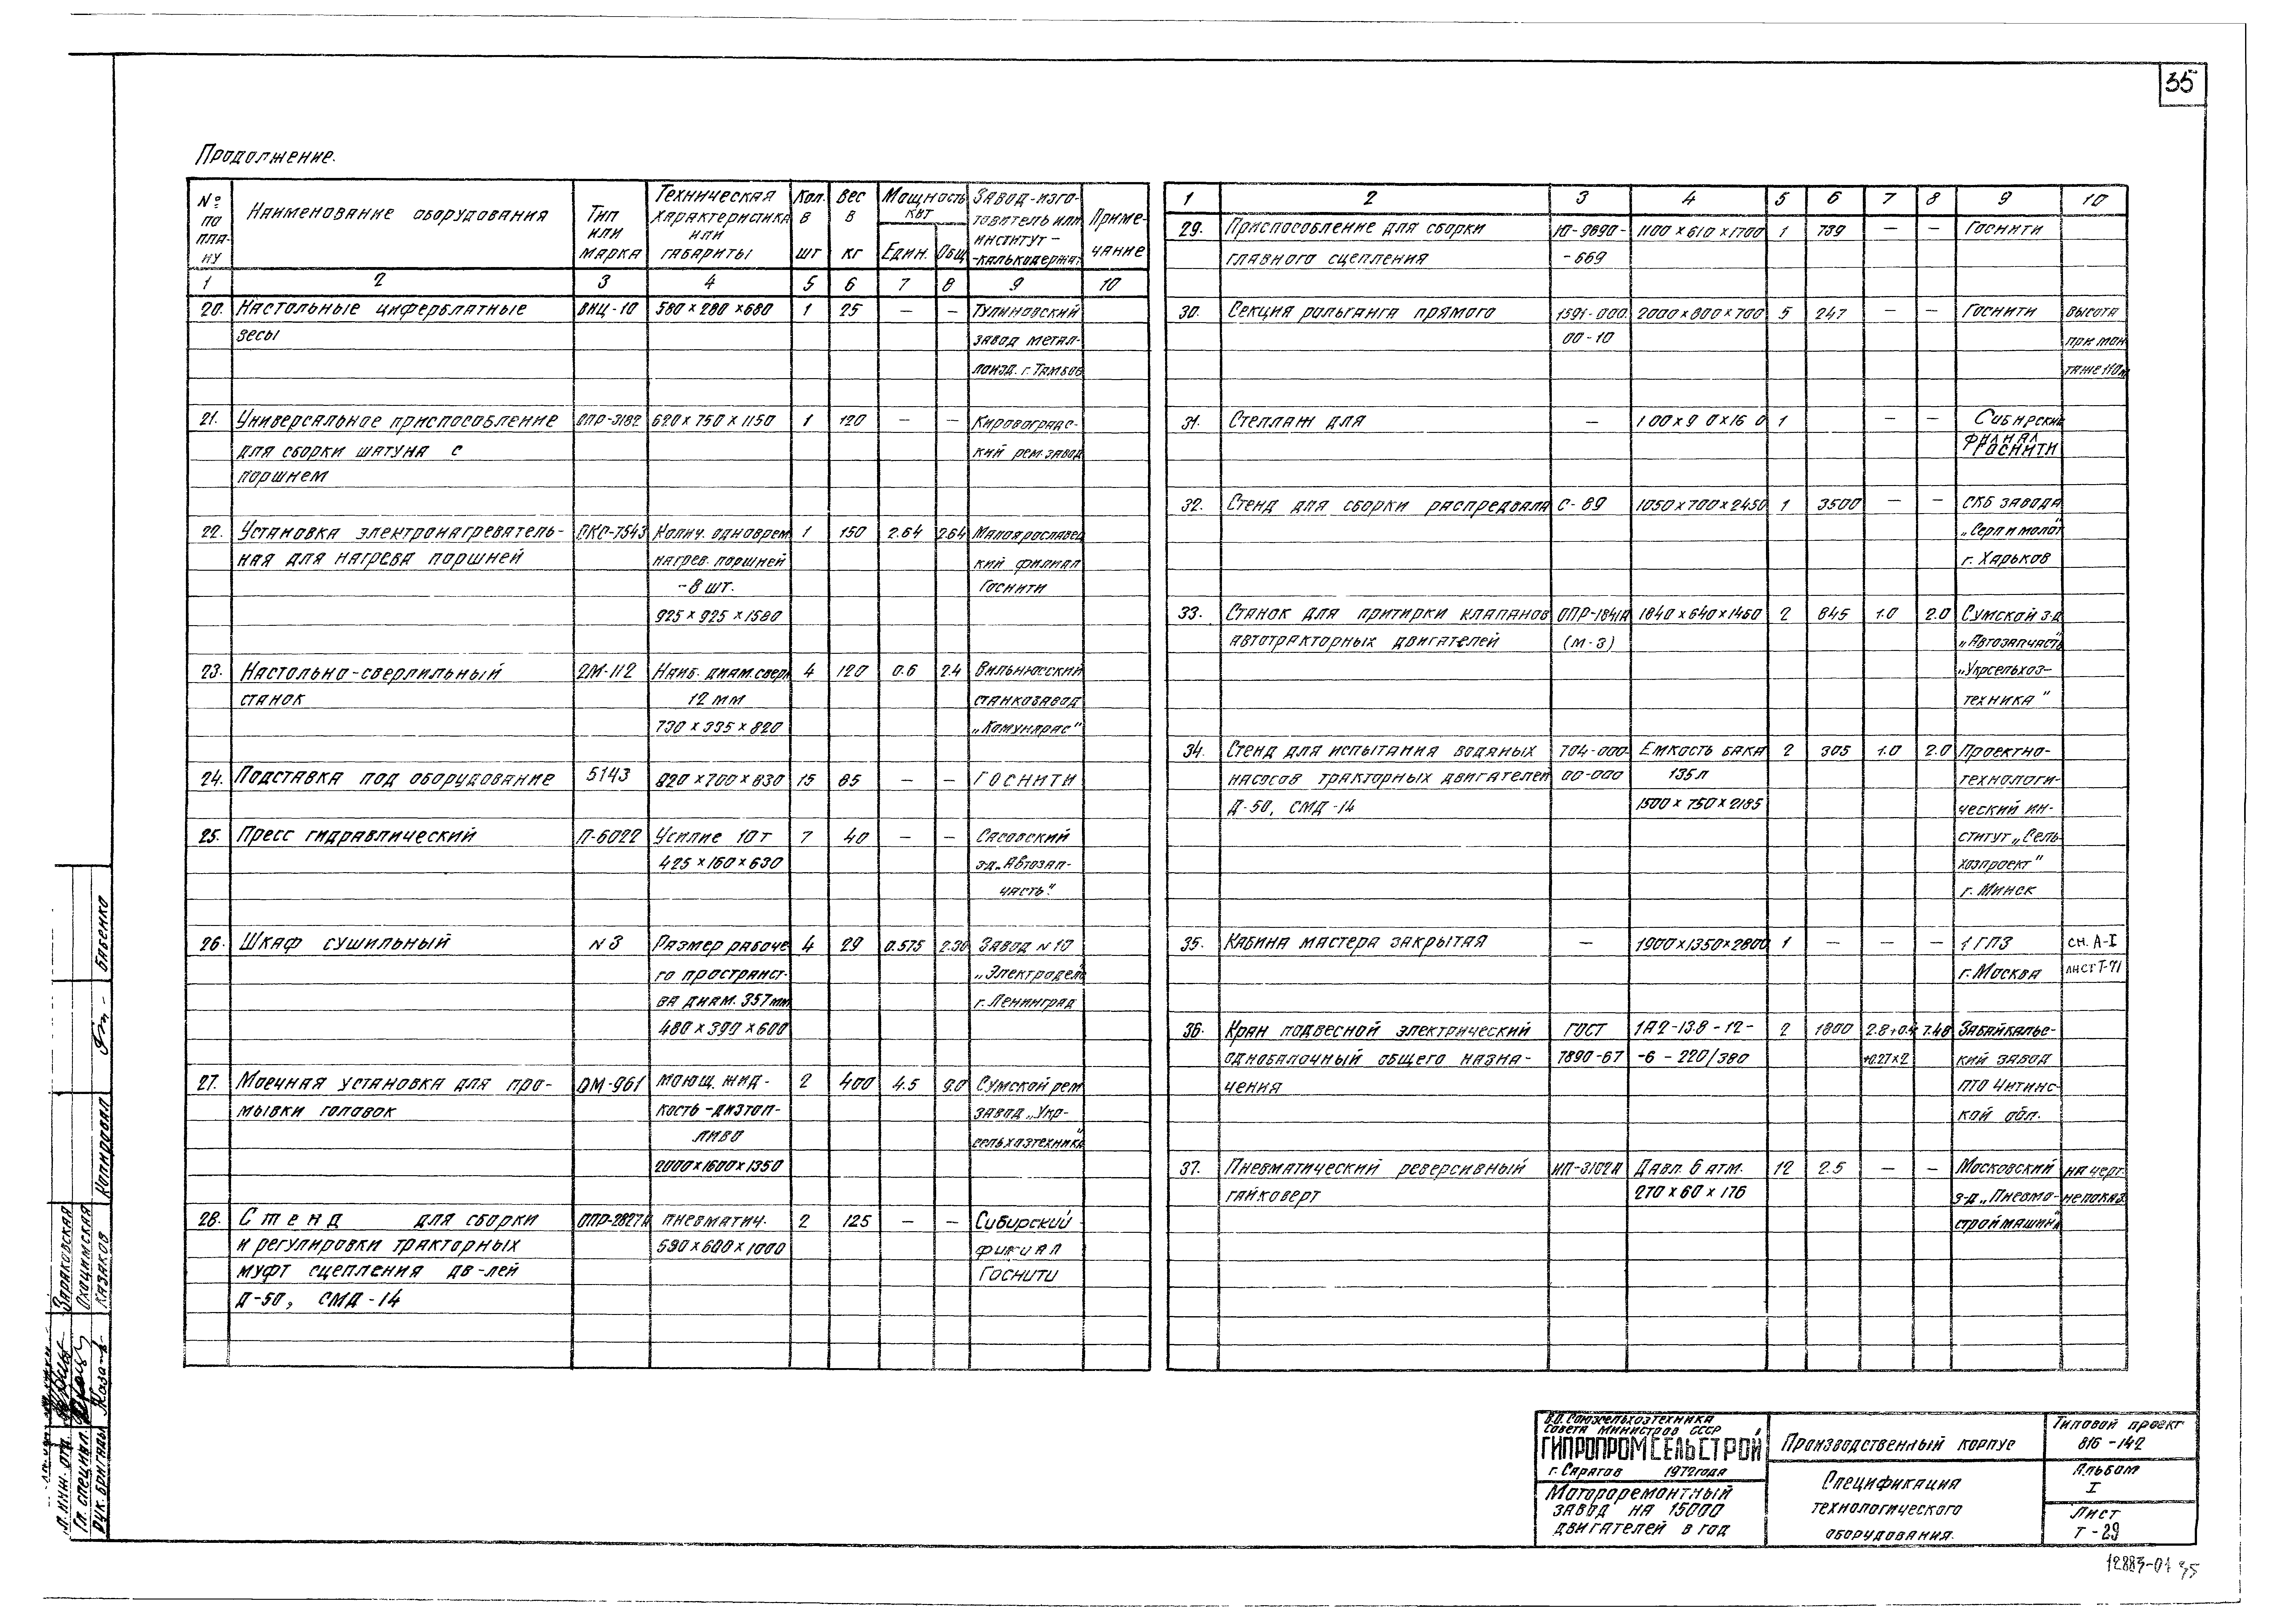 35
Продолжение.
№ по плану | Наименование оборудования | Тип или марка | Техническая характеристика или габариты | Кол. в шт | Вес в кг | Мощность квт Един. Общ. | Завод-изготовитель или институт-калькодержат. | Примечание
1 2 3 4 5 6 7 8 9 10
20. Настольные циферблатные ВНЦ-10 580×280×680 1 25 — — Тулиновский
весы завод метал-
лоизд. г. Тамбов
21. Универсальное приспособление ОПР-3182 620×750×1150 1 120 — — Кировоградс-
для сборки шатуна с кий рем.завод
поршнем
22. Установка электронагреватель- ОКС-7543 Колич. одноврем 1 150 2.64 2.64 Малоярославец
ная для нагрева поршней нагрев. поршней кий филиал
-8 шт. Госнити
925×925×1580
23. Настольно-сверлильный 2М-112 Наиб. диам.сверл 4 120 0.6 2.4 Вильнюсский
станок 12 мм станкозавод
730×335×820 „Комунарас"
24. Подставка под оборудование 5143 820×700×830 15 65 — — ГОСНИТИ
25. Пресс гидравлический П-6022 Усилие 10т 7 40 — — Сасовский
425×160×630 з-д „Автозап-
часть."
26. Шкаф сушильный N3 Размер рабоче 4 29 0.575 2.30 Завод N10
го пространст- „Электродел"
ва диам. 357мм г. Ленинград
480×390×600
27. Моечная установка для про- ОМ-961 моющ. жид- 2 400 4.5 9.0 Сумской рем
мывки головок кость-дизтоп- завод „Укр-
ливо сельхозтехника"
2000×1600×1350
28. Стенд для сборки ОПР-2827А пневматич. 2 125 — — Сибирский
и регулировки тракторных 590×600×1000 филиал
муфт сцепления дв-лей Госнити
Д-50, СМД-14
1 2 3 4 5 6 7 8 9 10
29. Приспособление для сборки 10-9690- 1100×610×1700 1 739 — — Госнити
главного сцепления -669
30. Секция рольганга прямого 1591-000 2000×800×700 5 247 — — Госнити высота
00-10 при мон
таже 110м
31. Стеллаж для — 1 00×9 0×16 0 1 — — Сибирский
филиал
ГОСНИТИ
32. Стенд для сборки распредвала С-69 1050×700×2450 1 3500 — — СКБ завода
„Серп и молот"
г. Харьков
33. Станок для притирки клапанов ОПР-1841А 1840×640×1460 2 845 1.0 2.0 Сумской з-д
автотракторных двигателей (М-3) „Автозапчасть"
„Укрсельхоз-
техника"
34. Стенд для испытания водяных 704-000- Емкость бака 2 305 1.0 2.0 Проектно-
насосов тракторных двигателей 00-000 135л технологи-
Д-50, СМД-14 1500×750×2185 ческий ин-
ститут „Сель
хозпроект"
г. Минск
35. Кабина мастера закрытая — 1900×1350×2800 1 — — — 1 ГПЗ см. А-I
г. Москва лист Т-71
36. Кран подвесной электрический ГОСТ 1А2-13.8-12- 2 1800 2.8+0.4 7.48 Забайкальс-
однобалочный общего назна- 7890-67 -6-220/380 +0.27×2 кий завод
чения ПТО Читинс-
кой обл.
37. Пневматический реверсивный ИП-3102А Давл. 6 атм. 12 2.5 — — Московский на черт.
гайковерт 270×60×176 з-д „Пневмо- не показ.
строймашина"
В.О. Союзсельхозтехника
Совета министров СССР
ГИПРОПРОМСЕЛЬСТРОЙ
г. Саратов 1972года
Мотороремонтный
завод на 15000
двигателей в год
Производственный корпус
Спецификация
технологического
оборудования.
Типовой проект
816-142
Альбом
I
Лист
Т-29
12883-01 35
Гл. инж. отд. Зараковская
Гл. специал. Охоцимская
Рук. бригады Казаков
Копировал Бабенко